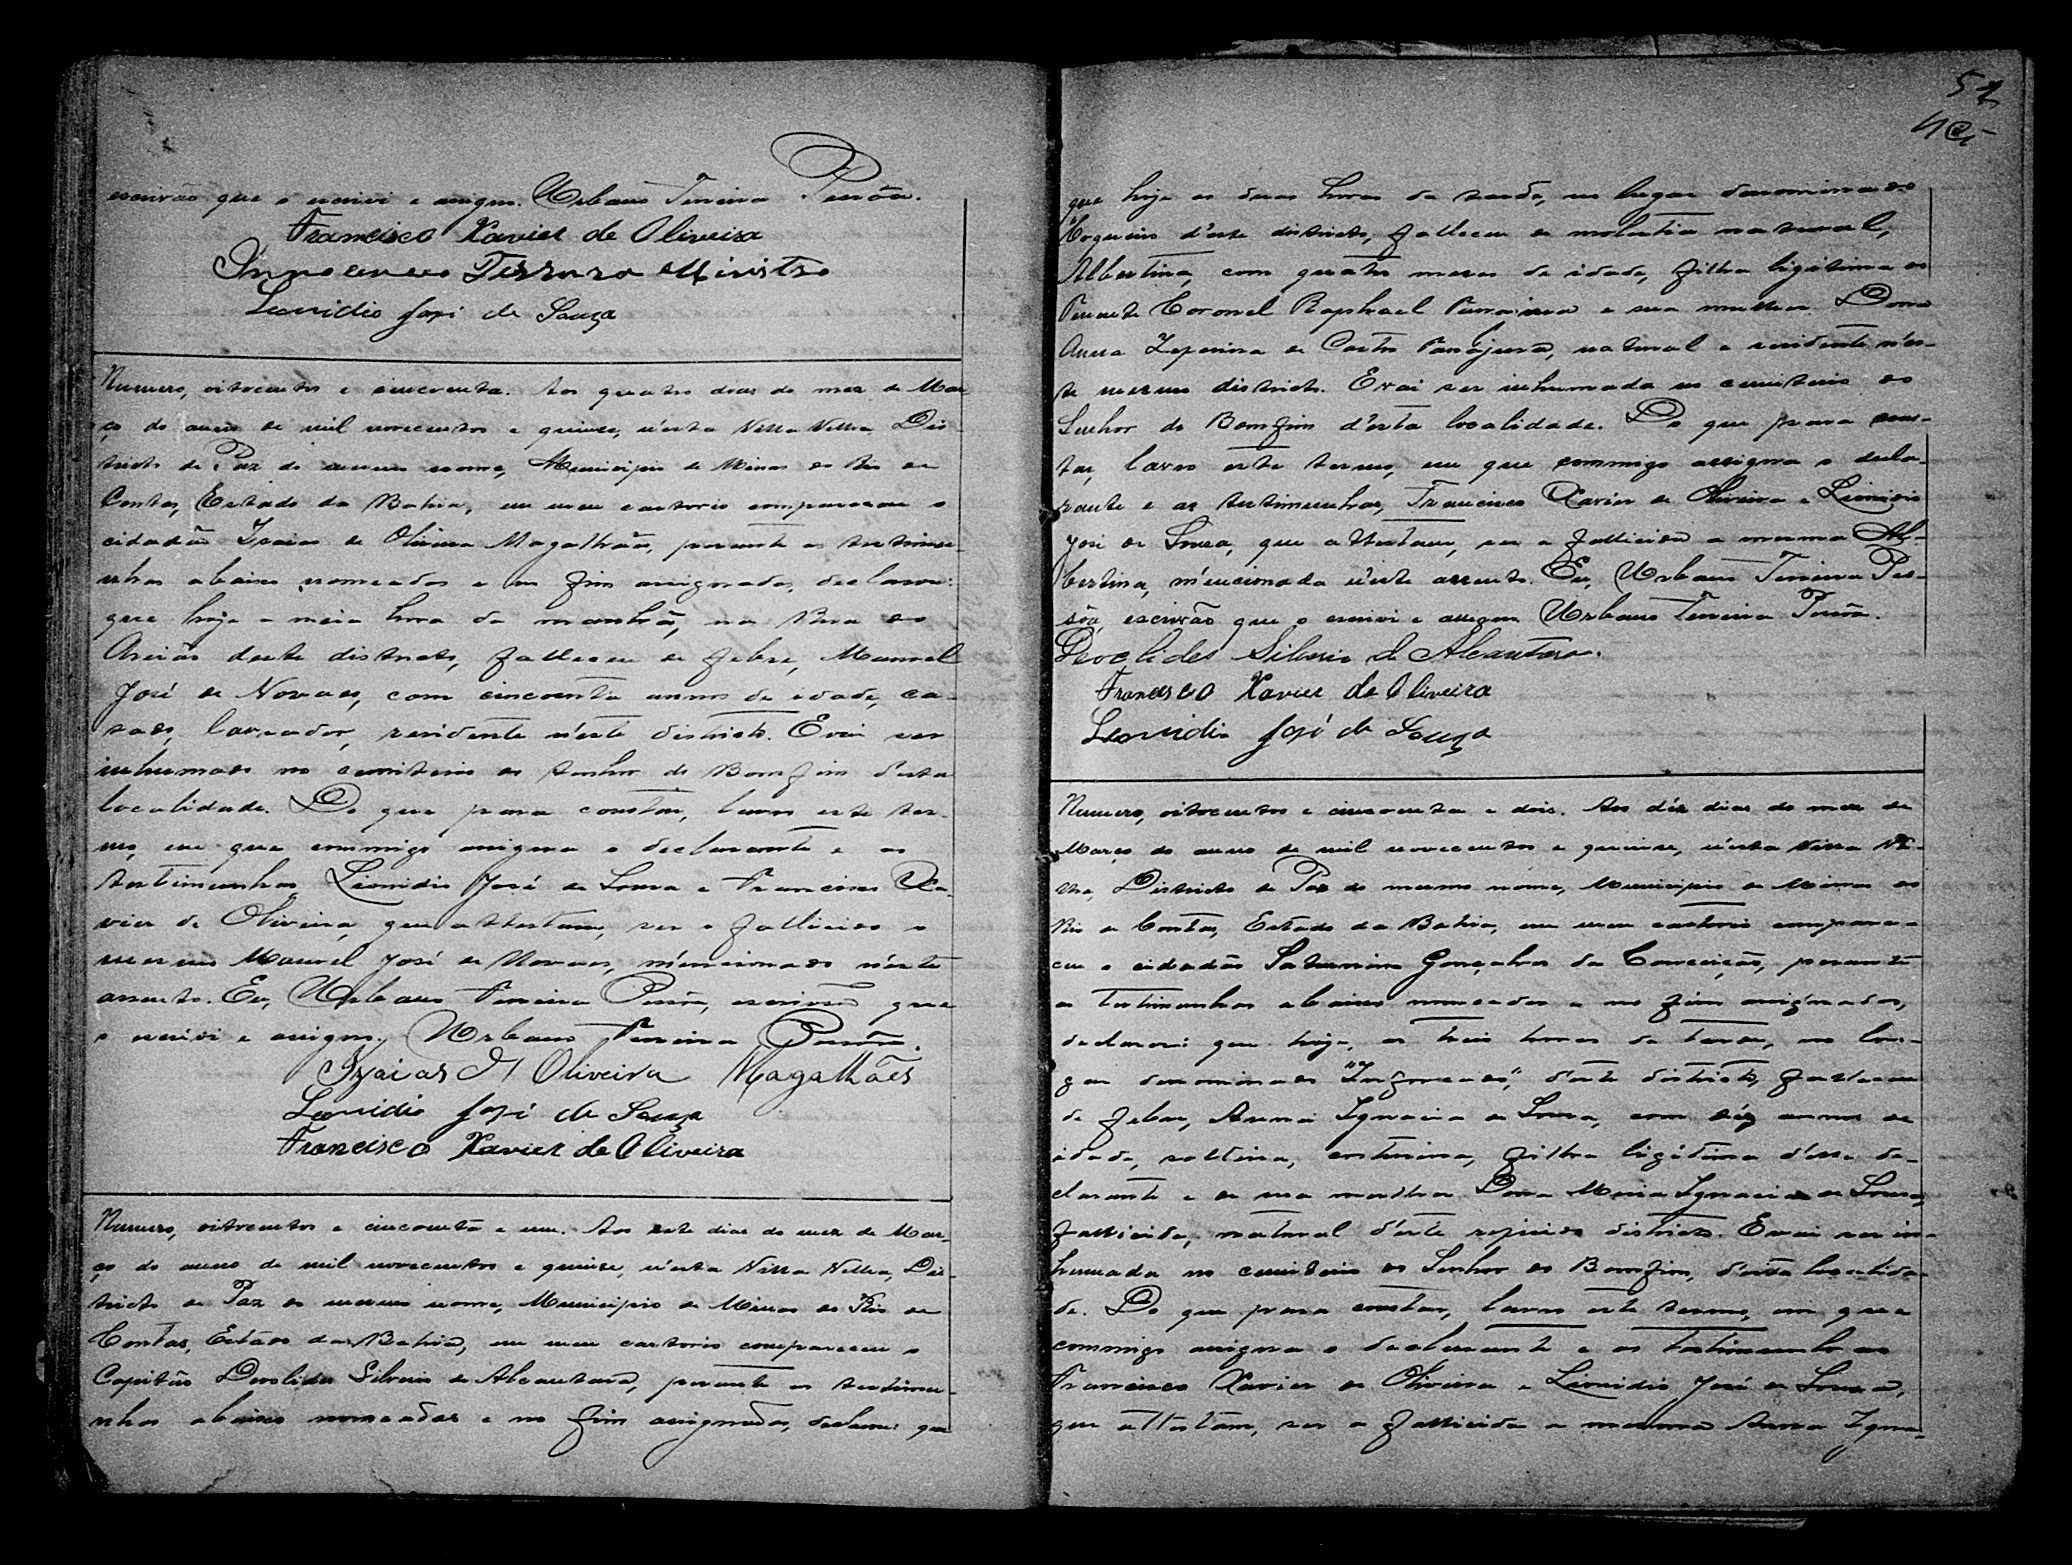 escrivão que o escrevi e assigno. Urbano Ferreira Pessôa.
Francisco Xavier de Oliveira
Innocencio Ministro
Leonidio José de Souza
Numero, oitocentos e cincoenta. Aos quatro dias do mez de Mar-
ço do anno de mil novecentos e quinze, n'esta Villa Velha, Dis-
tricto de Paz do mesmo nome, Municipio de Minas do Rio de
Contas, Estado da Bahia, em meu cartorio compareceu o
cidadão Izaias de Oliveira Magalhães, perante as testimu-
nhas abaixo nomeadas e no fim assignadas, declarou:
que hoje a meia hora da manhã, na
Areião deste districto, falleceu de febre, Manoel
José de Novaes, com cincoenta annos de idade, ca-
sado, lavrador, residente n'este districto. E vai ser
inhumado no cemiterio do Senhor do Bomfim d'esta
localidade. Do que para constar, lavro este ter-
mo, em que commigo assigna o declarante e as
testimunhas, Lionidio José de Souza e Francisco Xa-
vier de Oliveira, que attestam, ser o fallicido o
mesmo Manoel José de Novaes, mencionado n'este
assento. Eu, Urbano Ferreira Pessôa, escrivão que
o escrevi e assigno. Urbano Ferreira Pessôa.
Izaias d' Oliveira Magalhães
Leonidio José de Souza
Francisco Xavier de Oliveira
Numero, oitocentos e cincoenta e um. Aos sete dias do mez de Mar-
ço do anno de mil novecentos e quinze, n'esta Villa Velha, Dis-
tricto de Paz do mesmo nome, Municipio de Minas do Rio de
Contas, Estado da Bahia, em meu cartorio compareceu o
Capitão Deoclides Silverio de Alcantara, perante as testimu-
nhas abaixo nomeadas e no fim assignadas, declarou: que
52
que hoje as duas horas da tarde, no lugar denominado
d'este districto, falleceu de molestia natural,
Albertina, com quatro mezes de idade, filha ligitima do
Tenente Coronel Raphael e sua mulher Dona
Anna Zeferina de Castro, natural e residente n'es-
te mesmo districto. E vai ser inhumada no cemiterio do
Senhor do Bomfim d'esta localidade. Do que para cons-
tar, lavro este termo, em que commigo assigna o decla-
rante e as testimunhas, Francisco Xavier de Oliveira e Lionidio
José de Souza, que attestam, ser a fallicida a mesma Al-
bertina, mencionada n'este assento. Eu, Urbano Ferreira Pes-
sôa, escrivão que o escrevi e assigno Urbano Ferreira Pessôa.
Deoclides Silverio de Alcantara.
Francisco Xavier de Oliveira
Leonidio José de Souza
Numero, oitocentos e cincoenta e dois. Aos déz dias do mez de
Março do anno de mil novecentos e quinze, n'esta Villa Ve-
lha, Districto de Paz do mesmo nome, Municipio de Minas do
Rio de Contas, Estado da Bahia, em meu cartorio compare-
ceu o cidadão Saturnino Gonçalves da Conceição, perante
as testimunhas abaixo nomeadas e no fim assignadas,
declarou: que hoje, as treis horas da tarde, no lu-
gar denominado d'este districto, falleceu
de febre, Anna Ignacia de Souza, com déz annos de
idade, solteira, costureira, filha ligitima d'esse de-
clarante e de sua mulher Dona Maria Ignacia de Souza,
fallicida, natural d'este referido districto. E vai ser in-
humada no cemiterio do Senhor do Bomfim, d'esta localida-
de. Do que para constar, lavro este termo, em que
commigo assigna o declarante e as testimunhas
Francisco Xavier de Oliveira e Lionidio José de Souza,
que attestam, ser a fallicida a mesma Anna Igna-